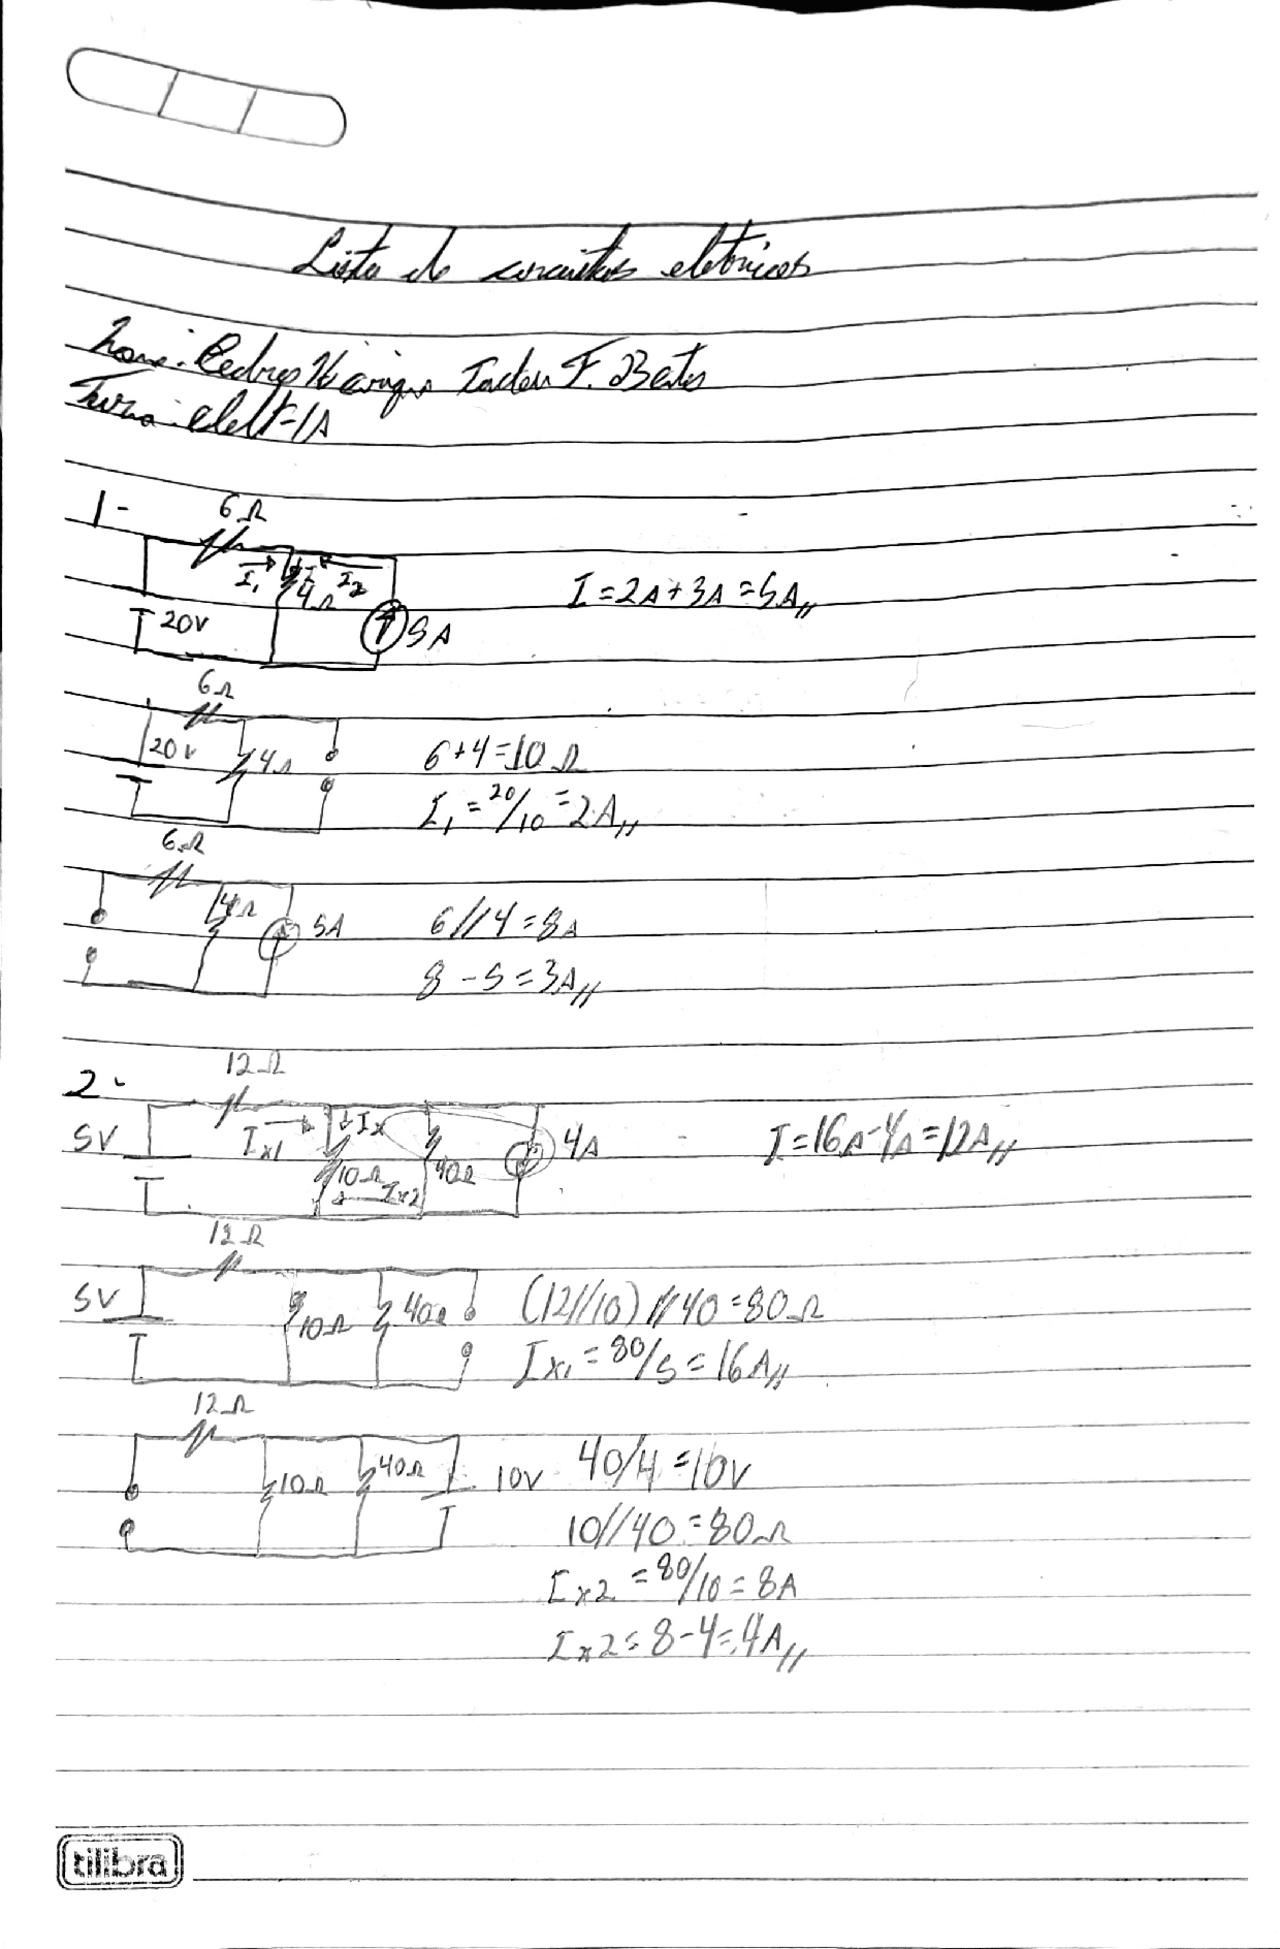 Lista de circuitos eletricos
Nome: Pedro Henrique Tadeu F. Bento
Turma: elelt-1A
1-
6Ω
I₁ I I₂
4Ω
20V
5A
I = 2A + 3A = 5A//
6Ω
20V 4Ω
6 + 4 = 10Ω
I₁ = 20/10 = 2A//
6Ω
4Ω 5A
6//4 = 8A
8 - 5 = 3A//
2-
12Ω
5V Ix1 Ix 10Ω Ix2 40Ω 4A
I = 16A - 4A = 12A//
12Ω
5V 10Ω 40Ω
(12//10)//40 = 80Ω
Ix₁ = 80/5 = 16A//
12Ω
10Ω 40Ω 10V
40/4 = 10V
10//40 = 80Ω
Ix2 = 80/10 = 8A
Ix2 = 8 - 4 = 4A//
tilibra